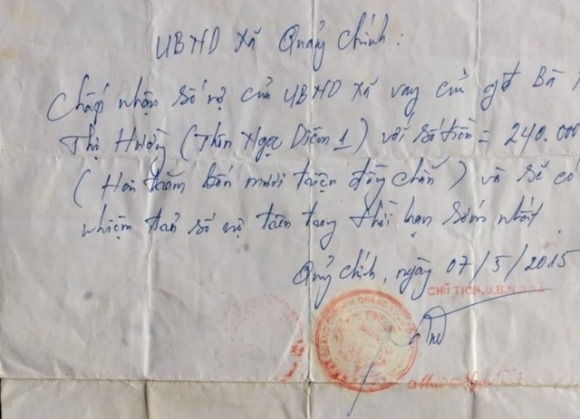 UBND Xã Quảng Chính:
Chấp nhận số nợ của UBND xã vay của gđ Bà
Thị Hường (Thôn Ngọc Diêm 1) với số tiền = 240.000
(Hai trăm bốn mươi triệu đồng chẵn) và sẽ có
nhiệm trả số nợ trên trong thời hạn sớm nhất.
Quảng Chính, ngày 07/5/2015
CHỦ TỊCH U.B.N.D XÃ